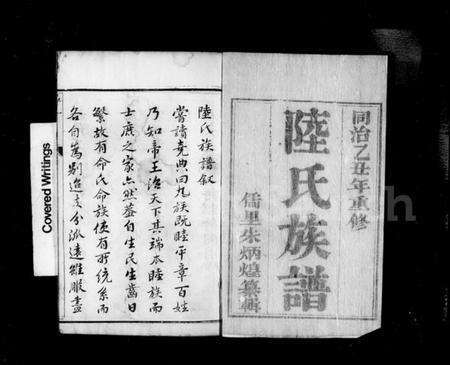 同治乙丑年重修
陸氏族譜
儒里朱炳煌纂輯
陸氏族譜叙
嘗讀堯典曰九族既睦平章百姓
乃知帝王治天下其端本睦族而
士庶之家亦然蓋自生民生齒日
繁故有命氏命族使有所統系而
各自為別迨支分派遠雖服盡
Covered Writings